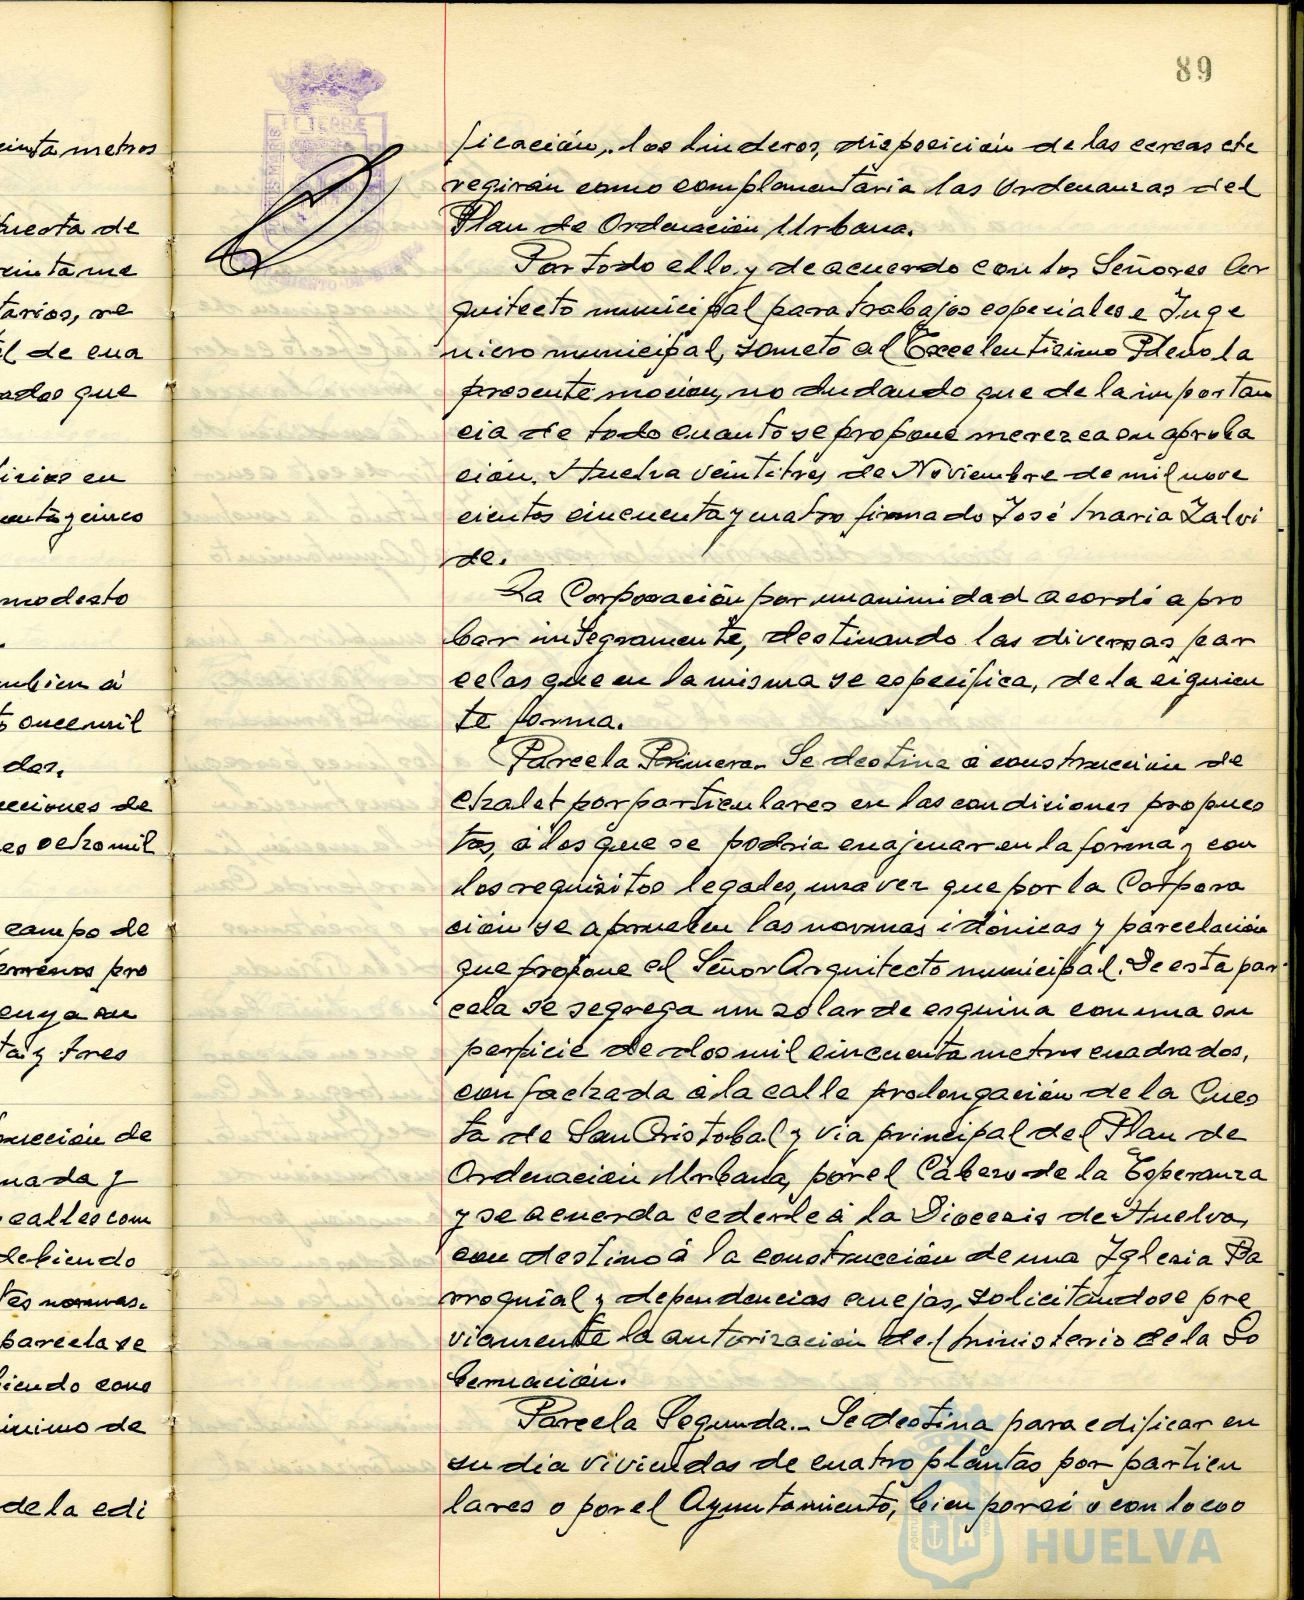 89
ficación, los linderos, disposición de las cercas etc
regirán como complementaria las Ordenanzas del
Plan de Ordenación Urbana.
Por todo ello, y de acuerdo con los Señores Ar
quitecto municipal para trabajos especiales e Inge
niero municipal, someto al Excelentisimo Pleno la
presente moción, no dudando que de la importan
cia de todo cuanto se propone merezca su aproba
ción. Huelva veintitres de Noviembre de mil nove
cientos cincuenta y cuatro firmado José Maria Zalvi
de.
La Corporación por unanimidad acordó apro
bar integramente, destinando las diversas par
celas que en la misma se especifica, de la siguien
te forma.
Parcela Primera.- Se destina á construcción de
chalet por particulares en las condiciones propues
tas, á los que se podria enajenar en la forma y con
los requisitos legales, una vez que por la Corpora
ción se aprueben las normas idónicas y parcelación
que propone el Señor Arquitecto municipal. De esta par
cela se segrega un solar de esquina con una su
perficie de dos mil cincuenta metros cuadrados,
con fachada á la calle prolongación de la Cues
ta de San Cristobal y via principal del Plan de
Ordenación Urbana, por el Cabezo de la Esperanza
y se acuerda cederle á la Diocesis de Huelva,
con destino á la construcción de una Iglesia Pa
rroquial y dependencias anejas, solicitandose pre
viamente la autorización del Ministerio de la Go
bernación.
Parcela Segunda.- Se destina para edificar en
su dia viviendas de cuatro plantas por particu
lares o por el Ayuntamiento, bien por si o con los co
einta metros
puesta de
reinta me
tarios, re
el de cua
ados que
ficios en
cuenta y cinco
modesto
ambien á
to once mil
dos.
cciones de
es ocho mil
campo de
terrenos pro
cuya su
ta y tres
trucción de
nada y
calles com
debiendo
tes normas.
parcela se
biendo cons
inimo de
de la edi
HUELVA